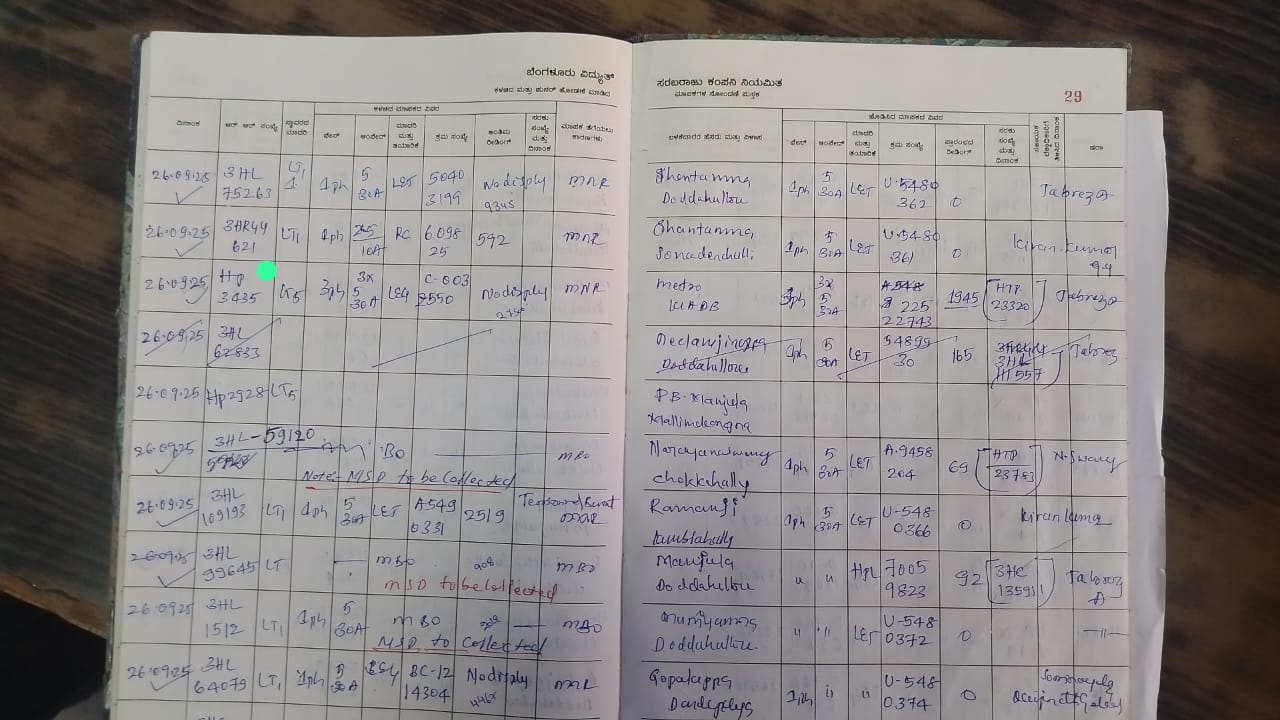 ಬೆಂಗಳೂರು ವಿದ್ಯುತ್
ಕಳಚಿದ ಮತ್ತು ಪುನರ್ ಜೋಡಣೆ ಮಾಡಿದ
ಕಳಚಿದ ಮಾಪಕದ ವಿವರ
ದಿನಾಂಕ
ಆರ್. ಆರ್. ಸಂಖ್ಯೆ
ಸ್ಥಾವರದ ಮಾದರಿ
ಫೇಸ್
ಆಂಪೇರ್
ಮಾದರಿ ಮತ್ತು ತಯಾರಿಕೆ
ಕ್ರಮ ಸಂಖ್ಯೆ
ಅಂತಿಮ ರೀಡಿಂಗ್
ಸರಕು ಸಂಖ್ಯೆ ಮತ್ತು ದಿನಾಂಕ
ಮಾಪಕ ತೆಗೆಯಲು ಕಾರಣಗಳು
26.09.25 3HL 75263 LT1 1ph 5 30A L&T 5040 3199 No disply 9345 MNR
26.09.25 3HR44 621 LT1 1ph 2.5 10A RC 6098 25 592 MNR
26.09.25 Hp 3435 LT5 3ph 3x 5 30A C-003 2550 No disply MNR
26.09.25 3HL 62833
26.09.25 Hp2928 LT5
26.09.25 3HL-59120 BO MBO
Note: MSD to be Collected
26.09.25 3HL 109193 LT1 1ph 5 30A L&T A-549 0331 2519 MNR
26.09.25 3HL 99645 LT MBO MBO
MSD to be Collected
26.09.25 3HL 1512 LT1 1ph 5 30A MBO MBO
MSD to Collected
26.09.25 3HL 64079 LT1 1ph 5 30A BC-12 14304 No disply MNR
ಸರಬರಾಜು ಕಂಪನಿ ನಿಯಮಿತ
ಮಾಪಕಗಳ ನೋಂದಣಿ ಪುಸ್ತಕ
29
ಜೋಡಿಸಿದ ಮಾಪಕದ ವಿವರ
ಬಳಕೆದಾರರ ಹೆಸರು ಮತ್ತು ವಿಳಾಸ
ಫೇಸ್
ಆಂಪೇರ್
ಮಾದರಿ ಮತ್ತು ತಯಾರಿಕೆ
ಕ್ರಮ ಸಂಖ್ಯೆ
ಪ್ರಾರಂಭದ ರೀಡಿಂಗ್
ಸರಕು ಸಂಖ್ಯೆ ಮತ್ತು ದಿನಾಂಕ
ಷರಾ
Shantamma Doddahullou 1ph 5 30A L&T U-5480 362 0 Tabreza
Shantamma 1ph 5 30A L&T U-5480 361 0 Kiran kumar
Metro KIADB 3ph 3x 5 30A 225 22743 1945 HTP 23320 Tabreza
Doddahullou 1ph 5 30A L&T 54899 30 165 3HL H1557 Tabrez
P.B. Manjula
Narayanaswamy chokkahally 1ph 5 30A L&T A.9458 204 69 HTP 23783 N.Swamy
Ramanji 1ph 5 30A L&T U-548 0366 0 Kiran kuma
Manjula Doddahullou " " HPL 7005 9823 92 3HL 13591 Tabreza
Muniyamma Doddahullou. " " L&T U-548 0372 0 —"—
Gopalappa 1ph " " U-548 0374 0